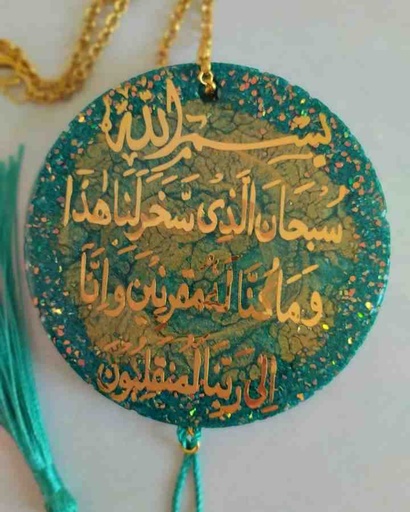 بسم الله
سُبْحَانَ الَّذِى سَخَّرَ لَنَا هٰذَا
وَمَا كُنَّا لَهُ مُقْرِنِينَ وَإِنَّا
إِلَىٰ رَبِّنَا لَمُنقَلِبُونَ